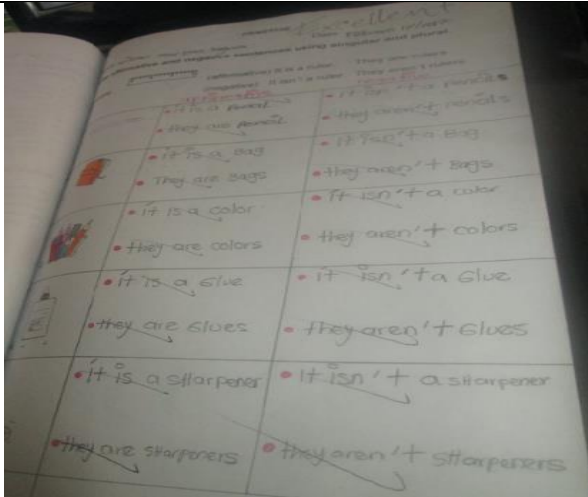 Excellent
affirmative and negative sentences using singular and plural
affirmative: It is a ruler They are rulers
negative: It isn't a ruler They aren't rulers
it is a pencil it isn't a pencils
they are pencil they aren't pencils
it is a Bag it isn't a Bag
They are Bags they aren't Bags
it is a color it isn't a color
they are colors they aren't colors
it is a Glue it isn't a Glue
they are Glues they aren't Glues
it is a sHarpener it isn't a sHarpener
they are sHarpeners they aren't sHarpeners